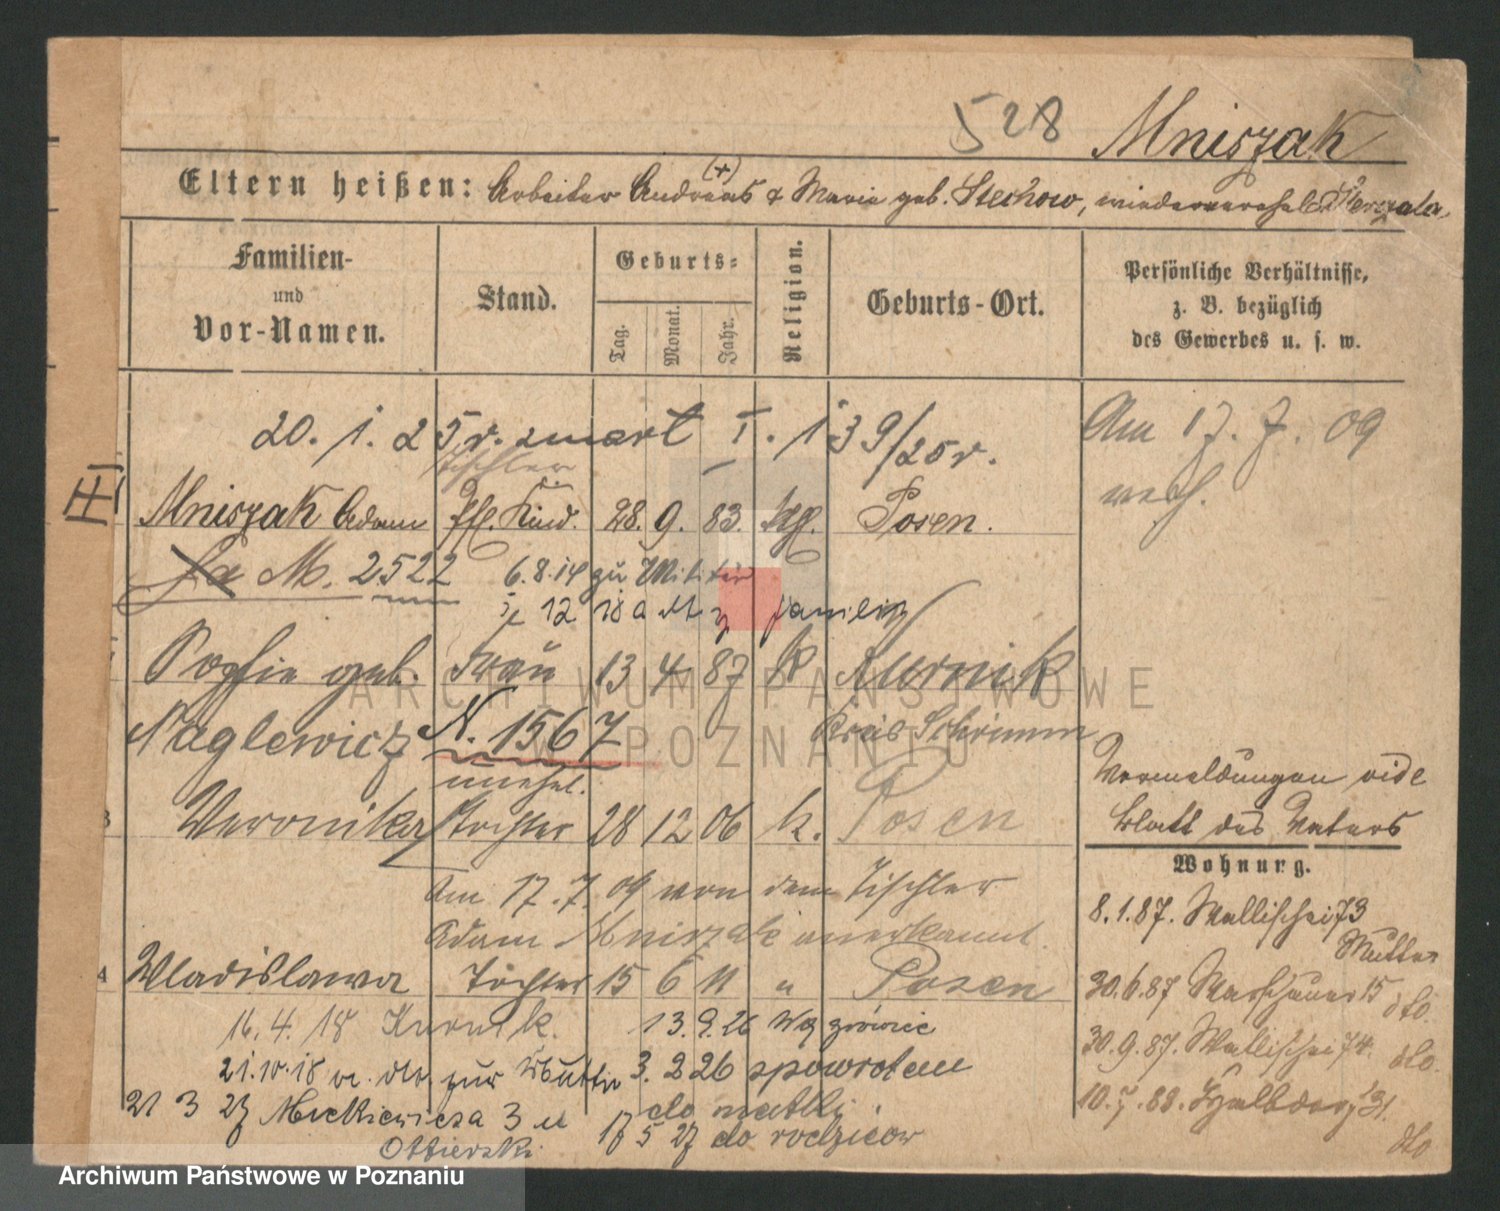 528 Mniszak
Eltern heißen: Arbeiter Andreas (+) & Marie geb. Stechow, wiederverehel.
Familien-
und
Vor-Namen.
Stand.
Geburts-
Tag.
Monat.
Jahr.
Religion.
Geburts-Ort.
Persönliche Verhältnisse,
z. B. bezüglich
des Gewerbes u. s. w.
20. 1. 25 r. zmarł I. 139/25 r.
Am 17. 7. 09
verh.
Tischler
Mniszak Adam Pfl. Kind. 28. 9. 83. kgl. Posen.
Fa M. 2522 6.8.14 zu Militär
12 18 a familie
Sophie geb. Frau 13 4 87 k Kurnik
Naglewicz N. 1567 Kreis Schrimm
unehel.
Veronika Tochter 28 12 06 k. Posen
Vermeldungen vide
Blatt des Vaters
Am 17.7.09 von dem Tischler
Adam Mniszak anerkannt.
Wladislawa Tochter 15 6 11 " Posen
16.4.18 Kurnik. 13.9.26 Wągrówiec
21.10.18 v. dto zur Mutter 3. 2 26 spowrotem
do matki
21 3 27 Mickiewicza 3 17 5 27 do rodziców
Wohnung.
8.1.87. Wallischei 73
Mutter
30.6.87 Warschauer 15 dto.
30.9.87. Wallischei 74. dto.
10.7.88. Halbdorf 31
dto
ARCHIWUM PAŃSTWOWE
W POZNANIU
Archiwum Państwowe w Poznaniu